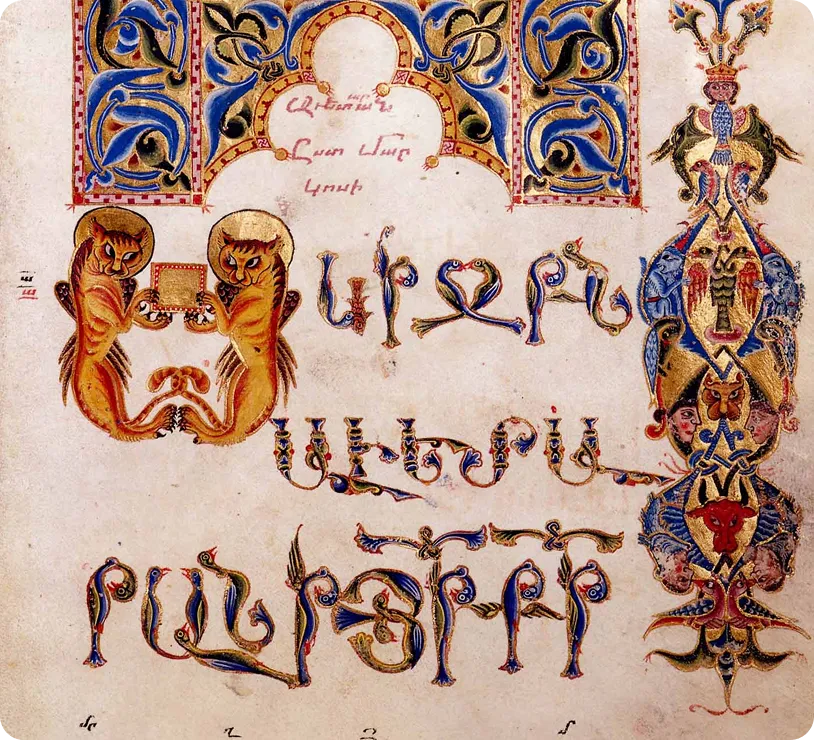 Աւետարան
Ըստ Մար
կոսի
ՍԿԻԶԲՆ
ԱՒԵՏԱ
ՐԱՆԻ ՅԻ ՔԻ